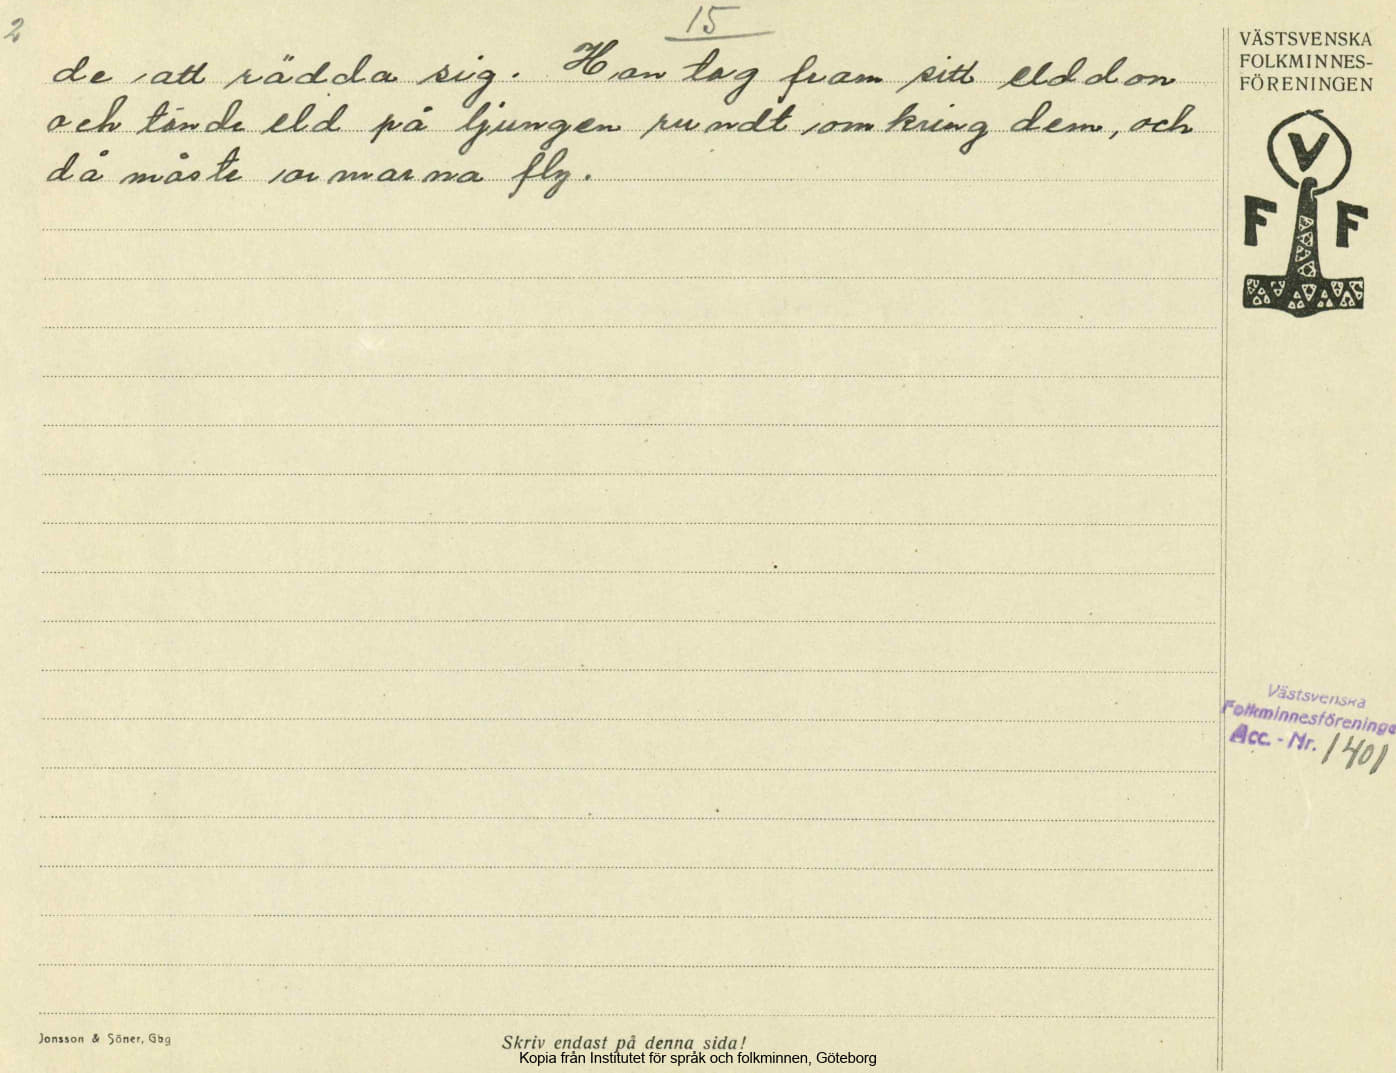 2
15
de att rädda sig. Han tog fram sitt elddon
och tände eld på ljungen rundt omkring dem, och
då måste ormarna fly.
VÄSTSVENSKA
FOLKMINNES-
FÖRENINGEN
V
F F
Västsvenska
Folkminnesföreninge
Acc. - Nr. 1401
Jonsson & Söner, Gbg
Skriv endast på denna sida!
Kopia från Institutet för språk och folkminnen, Göteborg